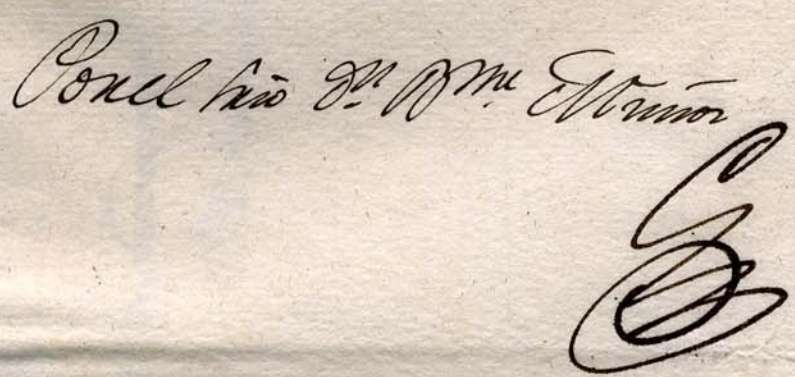 Por el Srio Dn. Bme. Muñoz